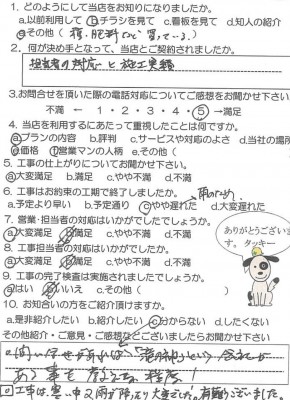 1. どのようにして当店をお知りになりましたか。
a.以前利用して b.チラシを見て c.看板を見て d.知人の紹介
e.その他( 種、肥料など 買っている。)
2. 何が決め手となって、当店とご契約されましたか。
担当者の対応と施工実績
3.お問合せを頂いた際の電話対応についてご感想をお聞かせ下さい
不満 ← 1・2・3・4・5 →満足
4. 当店を利用するにあたって重視したことは何ですか。
a.プランの内容 b.評判 c.サービスや対応のよさ d.当社の場所
e.価格 f.営業マンの人柄 e.その他(
5. 工事の仕上がりについてお聞かせ下さい。
a.大変満足 b.満足 c.やや不満 d.不満
6. 工事はお約束の工期で終了しましたか。 雨のため
a.予定より早い b.予定通り c.やや遅れた d.大変遅れた
7. 営業・担当者の対応はいかがでしたでしょうか。
a.大変満足 b.満足 c.やや不満 d.不満
8. 工事担当者の対応はいかがでしたか。
a.大変満足 b.満足 c.やや不満 d.不満
9. 工事の完了検査は実施されましたでしょうか。
a.はい b.いいえ c.その他(
ありがとうございま
す。タッキー
10. お知合いの方をご紹介頂けますか。
a.是非紹介したい b.紹介したい c.分からない d.したくない
その他紹介・ご意見・ご感想などございましたらお聞かせ下さい
問い合せがあれば という会社が
ある事も 教える 程度!
工事は、寒い中又雨が降ったり大変でした。有難うございました。